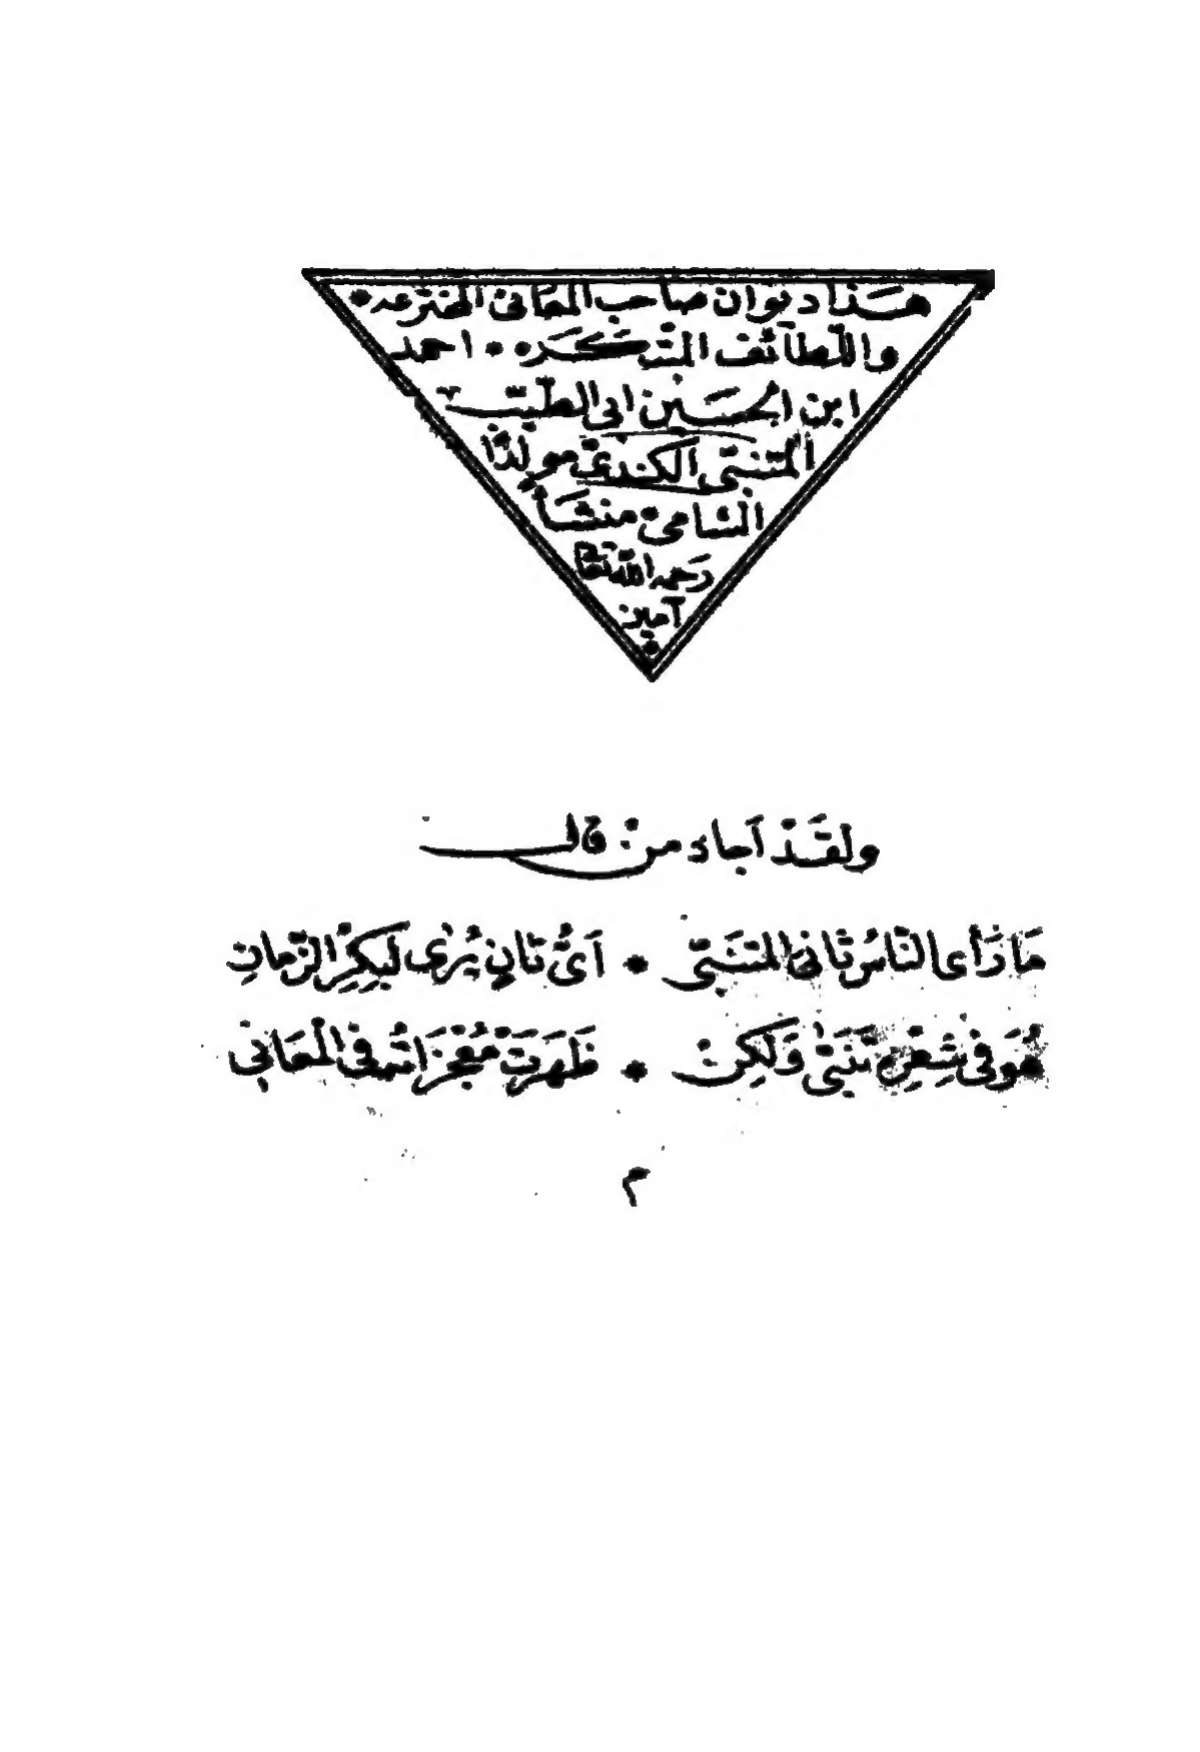 هذا ديوان صاحب المعاني المخترعه *
واللطآئف المبتكره * * احمد
ابن الحسين ابى الطيّب
المتنبّي الكندىّ مولدًا
الشامىّ منشأ
رحمه الله تعالى
آمين
ولقَدْ اَجاد منْ قال
مَا رَأى النّاسُ ثَانىَ المتنَبّى * اَىُّ ثَانٍ يُرٰى لِبِكِرِ الزّمانِ
هُوَ فى شِعْرِهِ تَنَبّى وَلٰكِنْ * ظَهَرَتْ مُعْجزَاتُه فى الْمَعَانِي
م